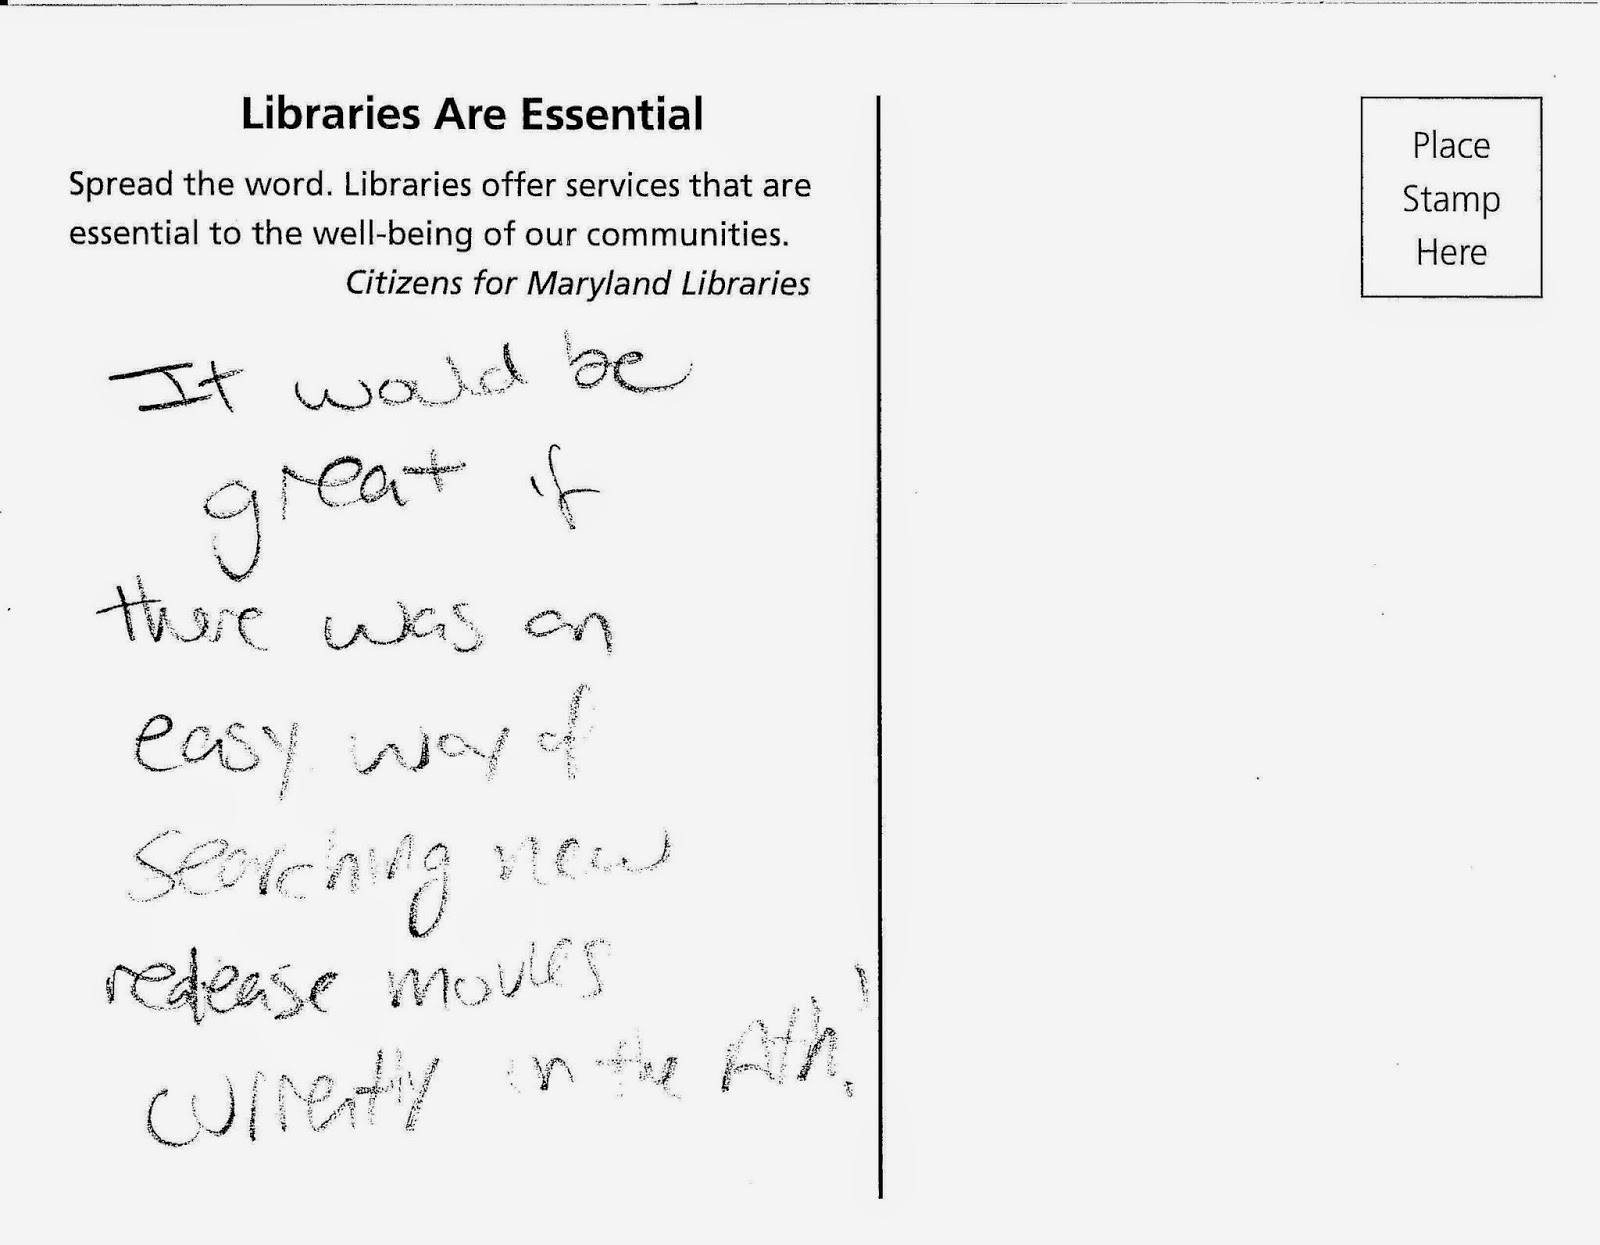 Libraries Are Essential
Spread the word. Libraries offer services that are
essential to the well-being of our communities.
Citizens for Maryland Libraries
Place
Stamp
Here
It would be
great if
there was an
easy way of
searching new
release movies
currently in the Ath!